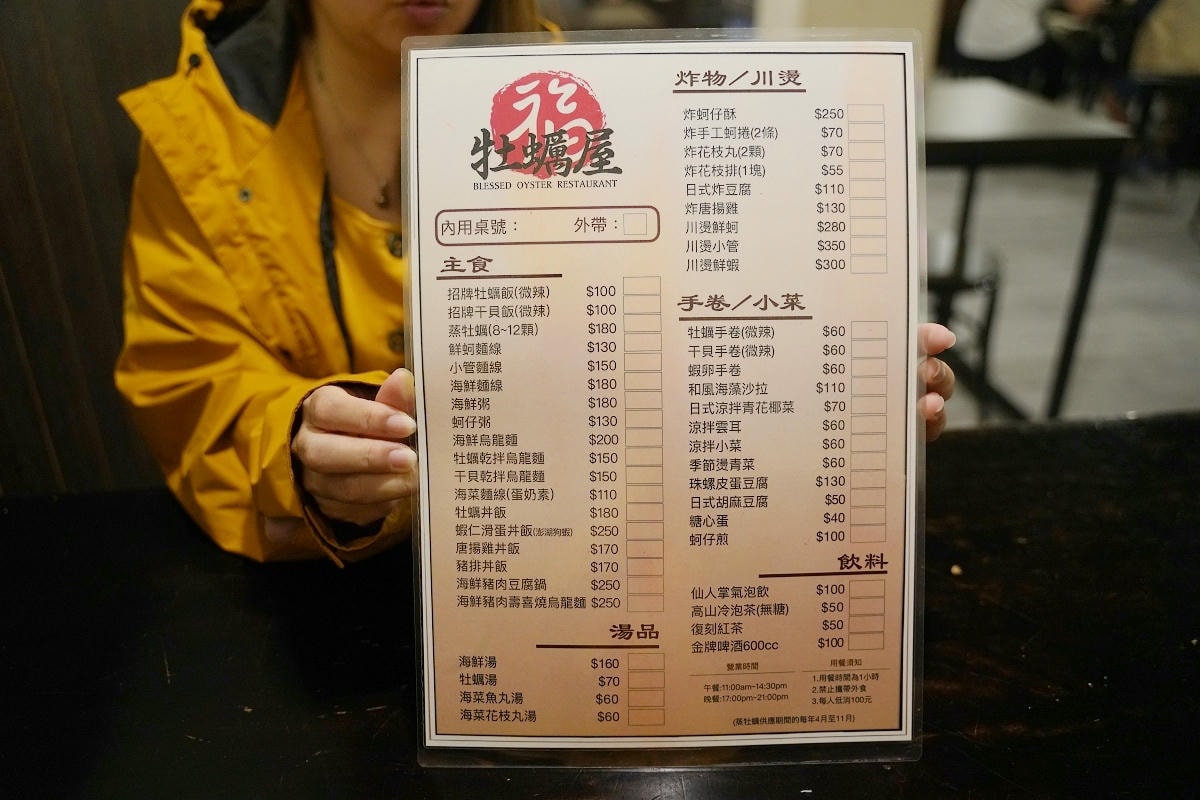 福
牡蠣屋
BLESSED OYSTER RESTAURANT
內用桌號： 外帶：
主食
招牌牡蠣飯(微辣) $100
招牌干貝飯(微辣) $100
蒸牡蠣(8~12顆) $180
鮮蚵麵線 $130
小管麵線 $150
海鮮麵線 $180
海鮮粥 $180
蚵仔粥 $130
海鮮烏龍麵 $200
牡蠣乾拌烏龍麵 $150
干貝乾拌烏龍麵 $150
海菜麵線(蛋奶素) $110
牡蠣丼飯 $180
蝦仁滑蛋丼飯(澎湖狗蝦) $250
唐揚雞丼飯 $170
豬排丼飯 $170
海鮮豬肉豆腐鍋 $250
海鮮豬肉壽喜燒烏龍麵 $250
湯品
海鮮湯 $160
牡蠣湯 $70
海菜魚丸湯 $60
海菜花枝丸湯 $60
炸物／川燙
炸蚵仔酥 $250
炸手工蚵捲(2條) $70
炸花枝丸(2顆) $70
炸花枝排(1塊) $55
日式炸豆腐 $110
炸唐揚雞 $130
川燙鮮蚵 $280
川燙小管 $350
川燙鮮蝦 $300
手卷／小菜
牡蠣手卷(微辣) $60
干貝手卷(微辣) $60
蝦卵手卷 $60
和風海藻沙拉 $110
日式涼拌青花椰菜 $70
涼拌雲耳 $60
涼拌小菜 $60
季節燙青菜 $60
珠螺皮蛋豆腐 $130
日式胡麻豆腐 $50
糖心蛋 $40
蚵仔煎 $100
飲料
仙人掌氣泡飲 $100
高山冷泡茶(無糖) $50
復刻紅茶 $50
金牌啤酒600cc $100
營業時間
午餐:11:00am~14:30pm
晚餐:17:00pm~21:00pm
用餐須知
1.用餐時間為1小時
2.禁止攜帶外食
3.每人低消100元
(蒸牡蠣供應期間約每年4月至11月)